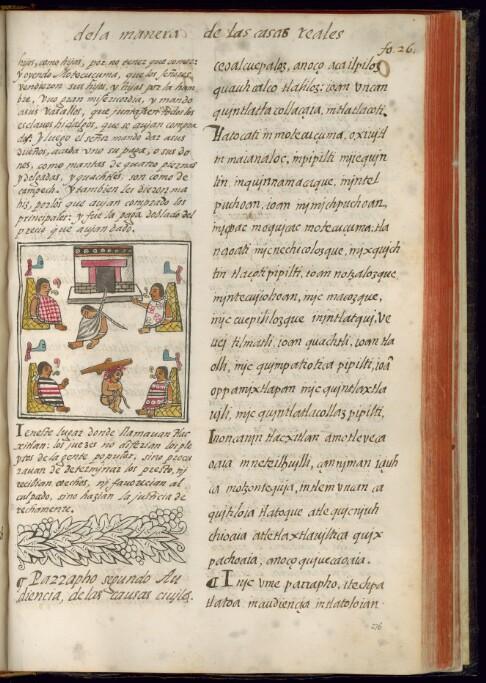 dela manera de las casas reales
fo. 26.
hijas, como hijos, por no tener que comer:
y oyendo Motecuçuma, que los señores
vendieron sus hijos, y hijas por la ham
bre, vuo gran misericordia, y mando
a sus vasallos, que juntassen todos los
esclauos hidalgos, que se auian compra
do: y luego el señor mando dar a sus
dueños, a cada vno su paga, o sus do
nes, como mantas de quatro piernas
y delgadas, y quachtles, son como de
campech. Y tambien les dieron ma
hiz, por los que auian comprado los
principales: y fue la paga doblado del
precio que auian dado.
Ieneste lugar donde llamauan tlac
xitlan: los juezes no differian los ple
ytos de la gente popular, sino procu
rauan de determinar los presto, nj
recibian coechos, nj fauorecian al
culpado, sino hazian la justicia de
rechamente.
¶ Parrapho segundo Au
diencia, de las causas ciujles.
ceoalcuepaloz, anoço acailpiloz
quauhcalco tlaliloz: ioan vncan
qujntlatla collacaia, intlatlacoti.
Tlatocati in motecuçuma, oxiujtl
in maianaloc, mjpipilti mjequjn
tin inqujnnamacaque, in jntel
puchoan, ioan in jmjchpuchoan,
njquac moqujcac motecuçuma: tla
naoati njcnechicolozque, njxqujch
tin tlacoti pipilti, ioan notzalozque
in jntecujiohoan, njc macozque,
njc cuepililozque in jntlatquj, ve
vej tilmatli, ioan quachtli, ioan tla
olli, njc qujmpatiotica pipilti, ioã
oppa njxtlapan njc qujntlaxtla
uili, njc qujntlatlacollaz pipilti.
Inoncan jn tlacxitlan amo tleveca
oaia in neteilhujlli, çan njman iauh
ca motzontequja, intlem vncan ca
qujtiloia tlatoque atle qujcnjuh
chioaia atle tlaxtlaujltica qujx
pachoaia, anoço qujuecaoaia.
¶ Injc vme parrapho, itechpa
tlatoa in audiencia in tlatoloian
26